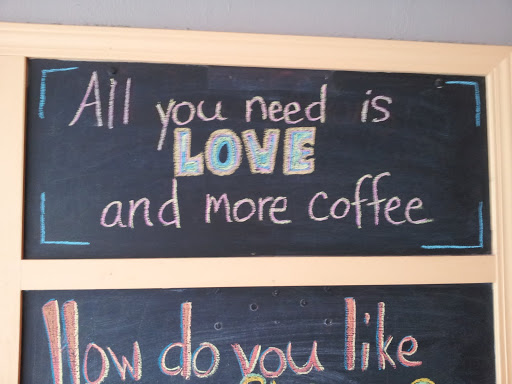 All you need is
LOVE
and more coffee
How do you like